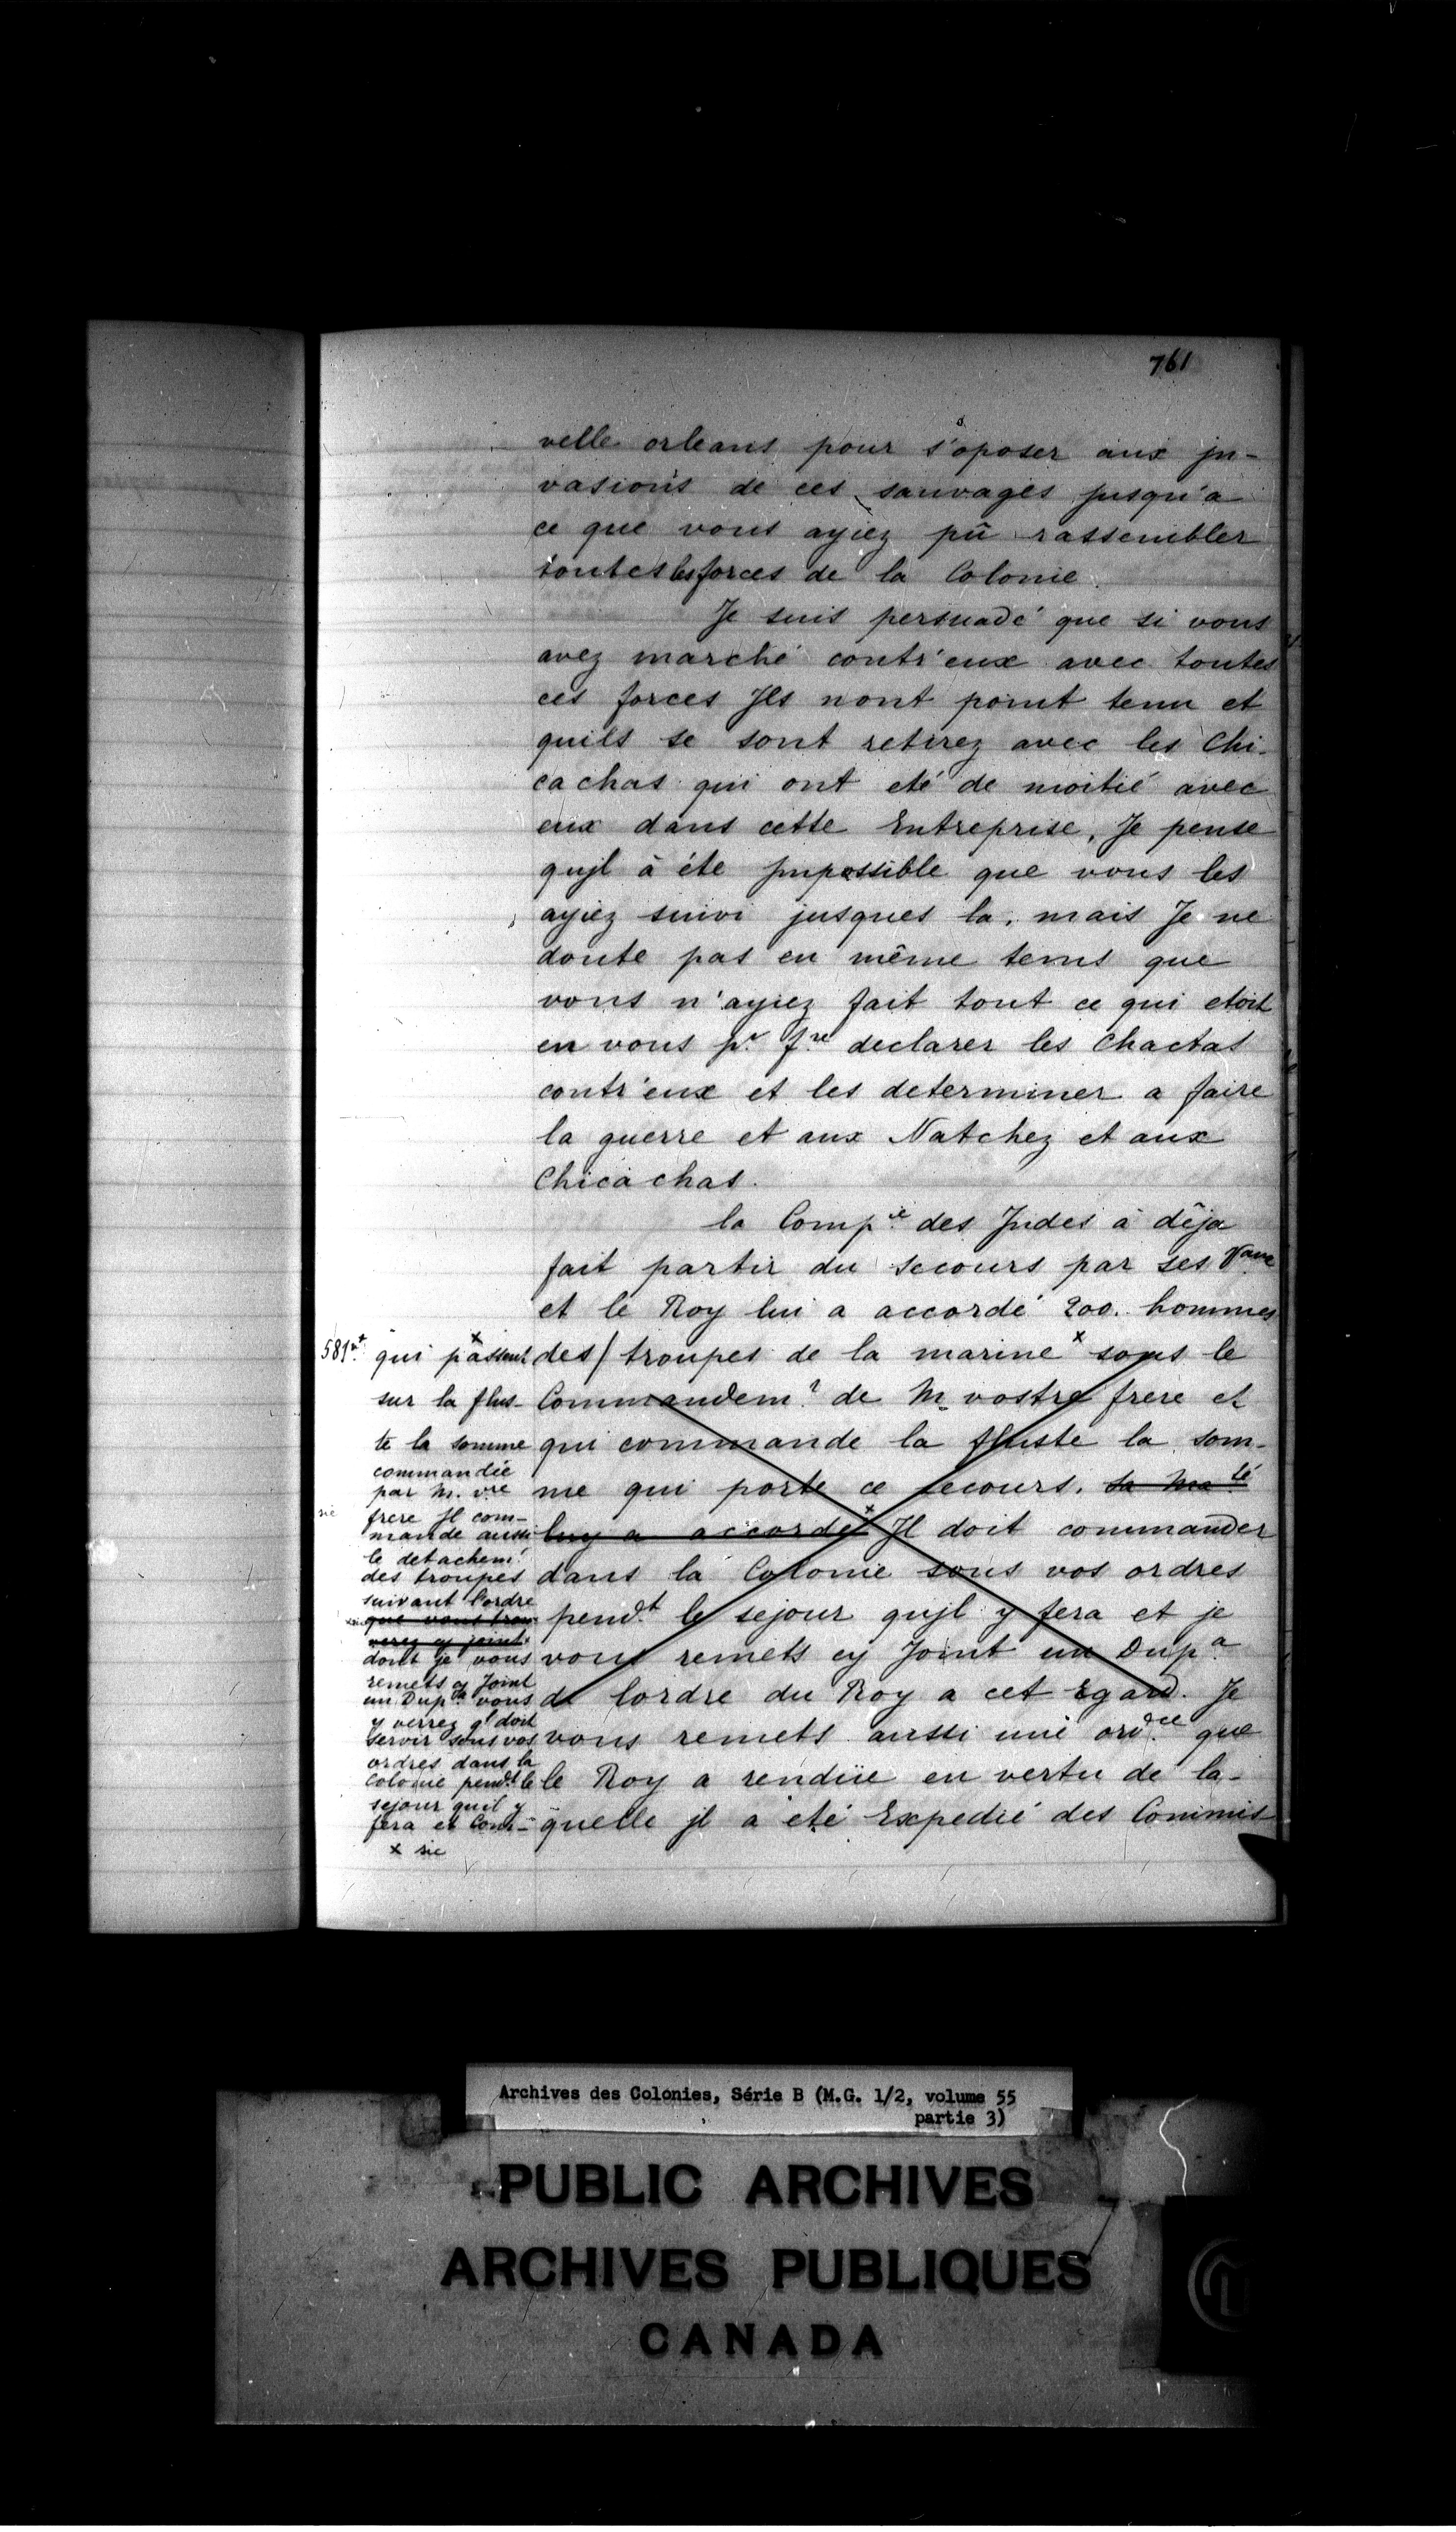 761
velle orleans pour s'oposer aux jn-
vasions de ces sauvages jusqu'a
ce que vous ayiez pû rassembler
toutes les forces de la Colonie.
Je suis persuadé que si vous
avez marché contr'eux avec toutes
ces forces Jls nont point tenu et
quils se sont retirez avec les Chi-
cachas qui ont eté de moitié avec
eux dans cette Entreprise, Je pense
qujl à éte Jmpossible que vous les
ayiez suivi jusques la, mais Je ne
doute pas en même tems que
vous n'ayiez fait tout ce qui etoit
en vous pr. fre. declarer les Chactas
contr'eux et les determiner a faire
la guerre et aux Natchez et aux
Chicachas.
la Compie. des Jndes à dêja
fait partir du secours par ses Vaux
et le Roy lui a accordé 200. hommes
des / troupes de la marine x sous le
Commandemt. de M. vostre frere et
qui commande la fluste la som-
me qui porte ce secours. Sa Mate.
luy a accordé x Jl doit commander
dans la Colonie sous vos ordres
pendt. le sejour qujl y fera et je
vous remets cy Joint un Dupa.
de lordre du Roy a cet Egard. Je
vous remets aussi une ordce. que
le Roy a rendüe en vertu de la-
quelle jl a eté Expedié des Commis
581
x
qui passent
sur la flus-
te la somme
commandée
par M. vre
sic
frere Jl com-
mande aussi
le detachemt.
des troupes
suivant l'ordre
que vous trou-
verez cy joint.
dont je vous
remets cy Joint
un Dupta. vous
y verrez ql doit
servir sous vos
ordres dans la
Colonie pendt. le
sejour quil y
fera et Com-
x sic
Archives des Colonies, Série B (M.G. 1/2, volume 55
partie 3)
PUBLIC ARCHIVES
ARCHIVES PUBLIQUES
CANADA